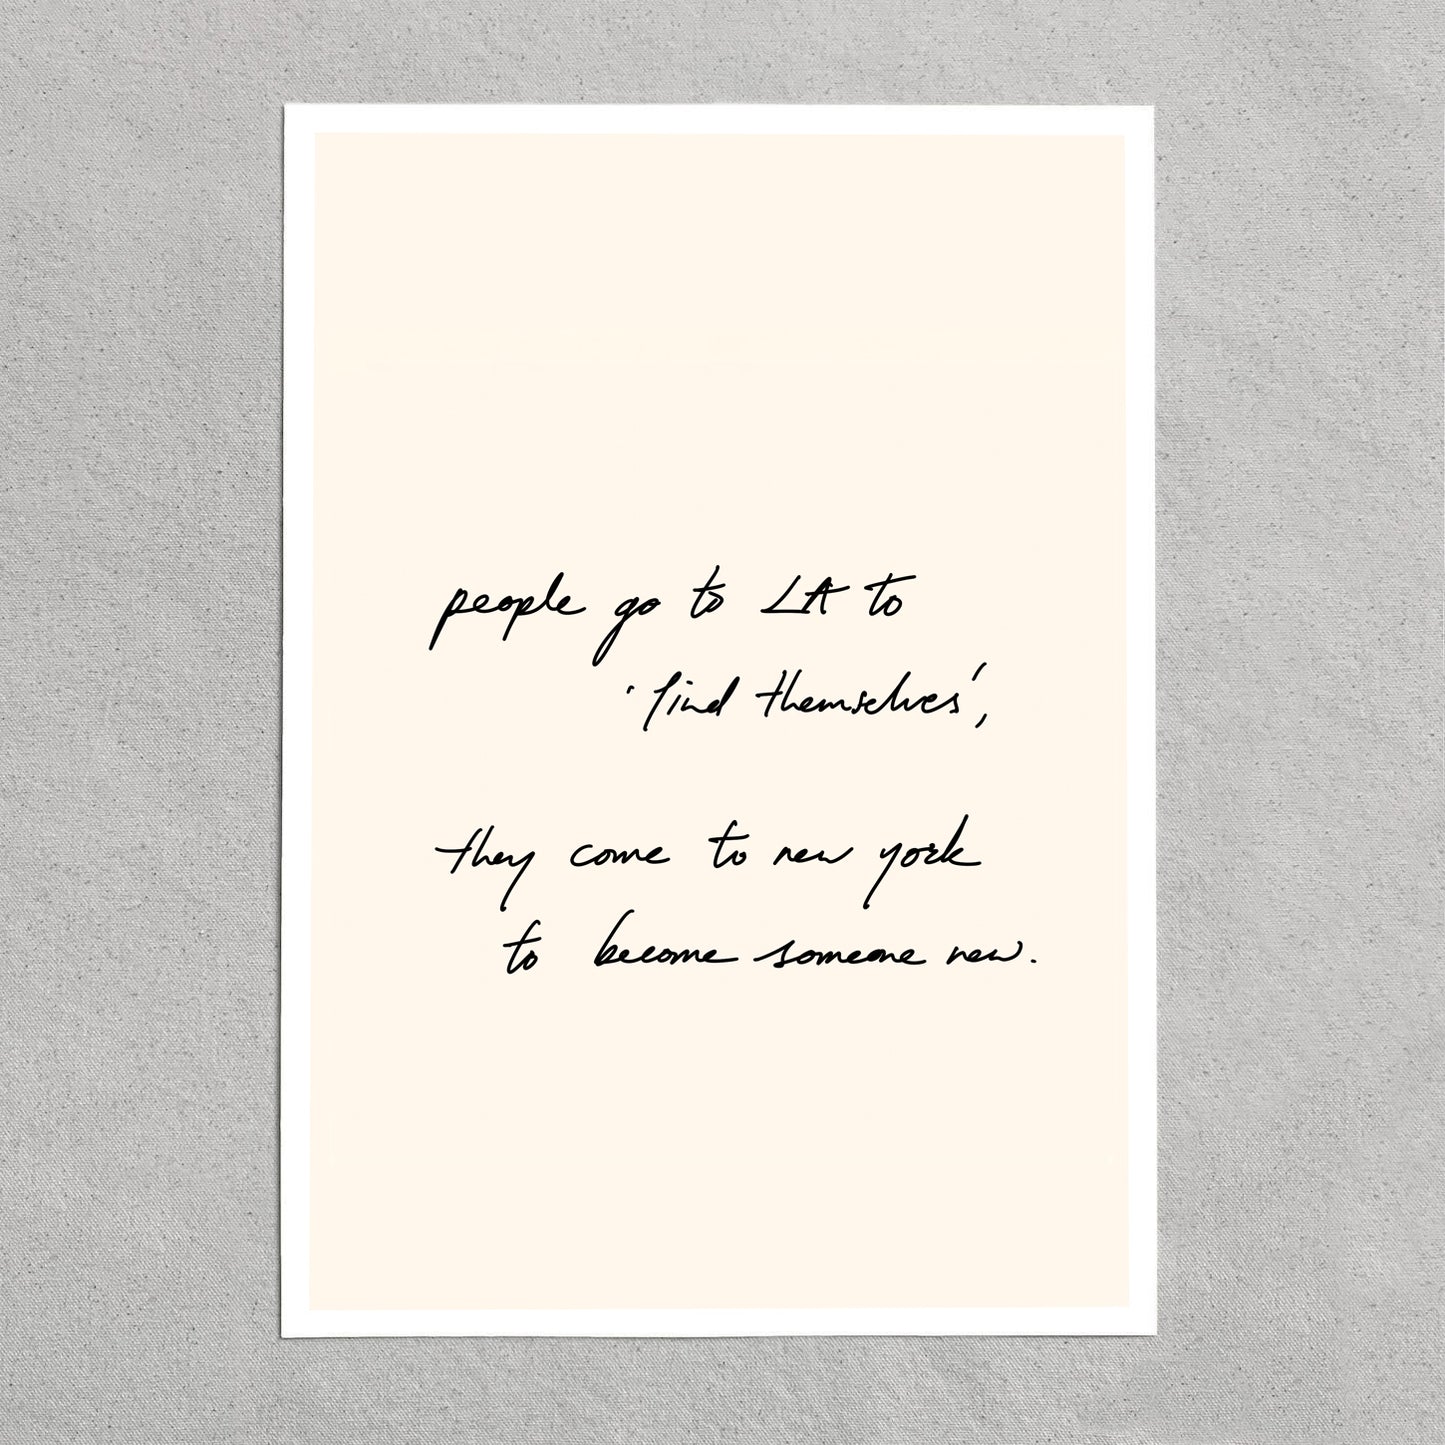 people go to LA to
'find themselves',
they come to new york
to become someone new.